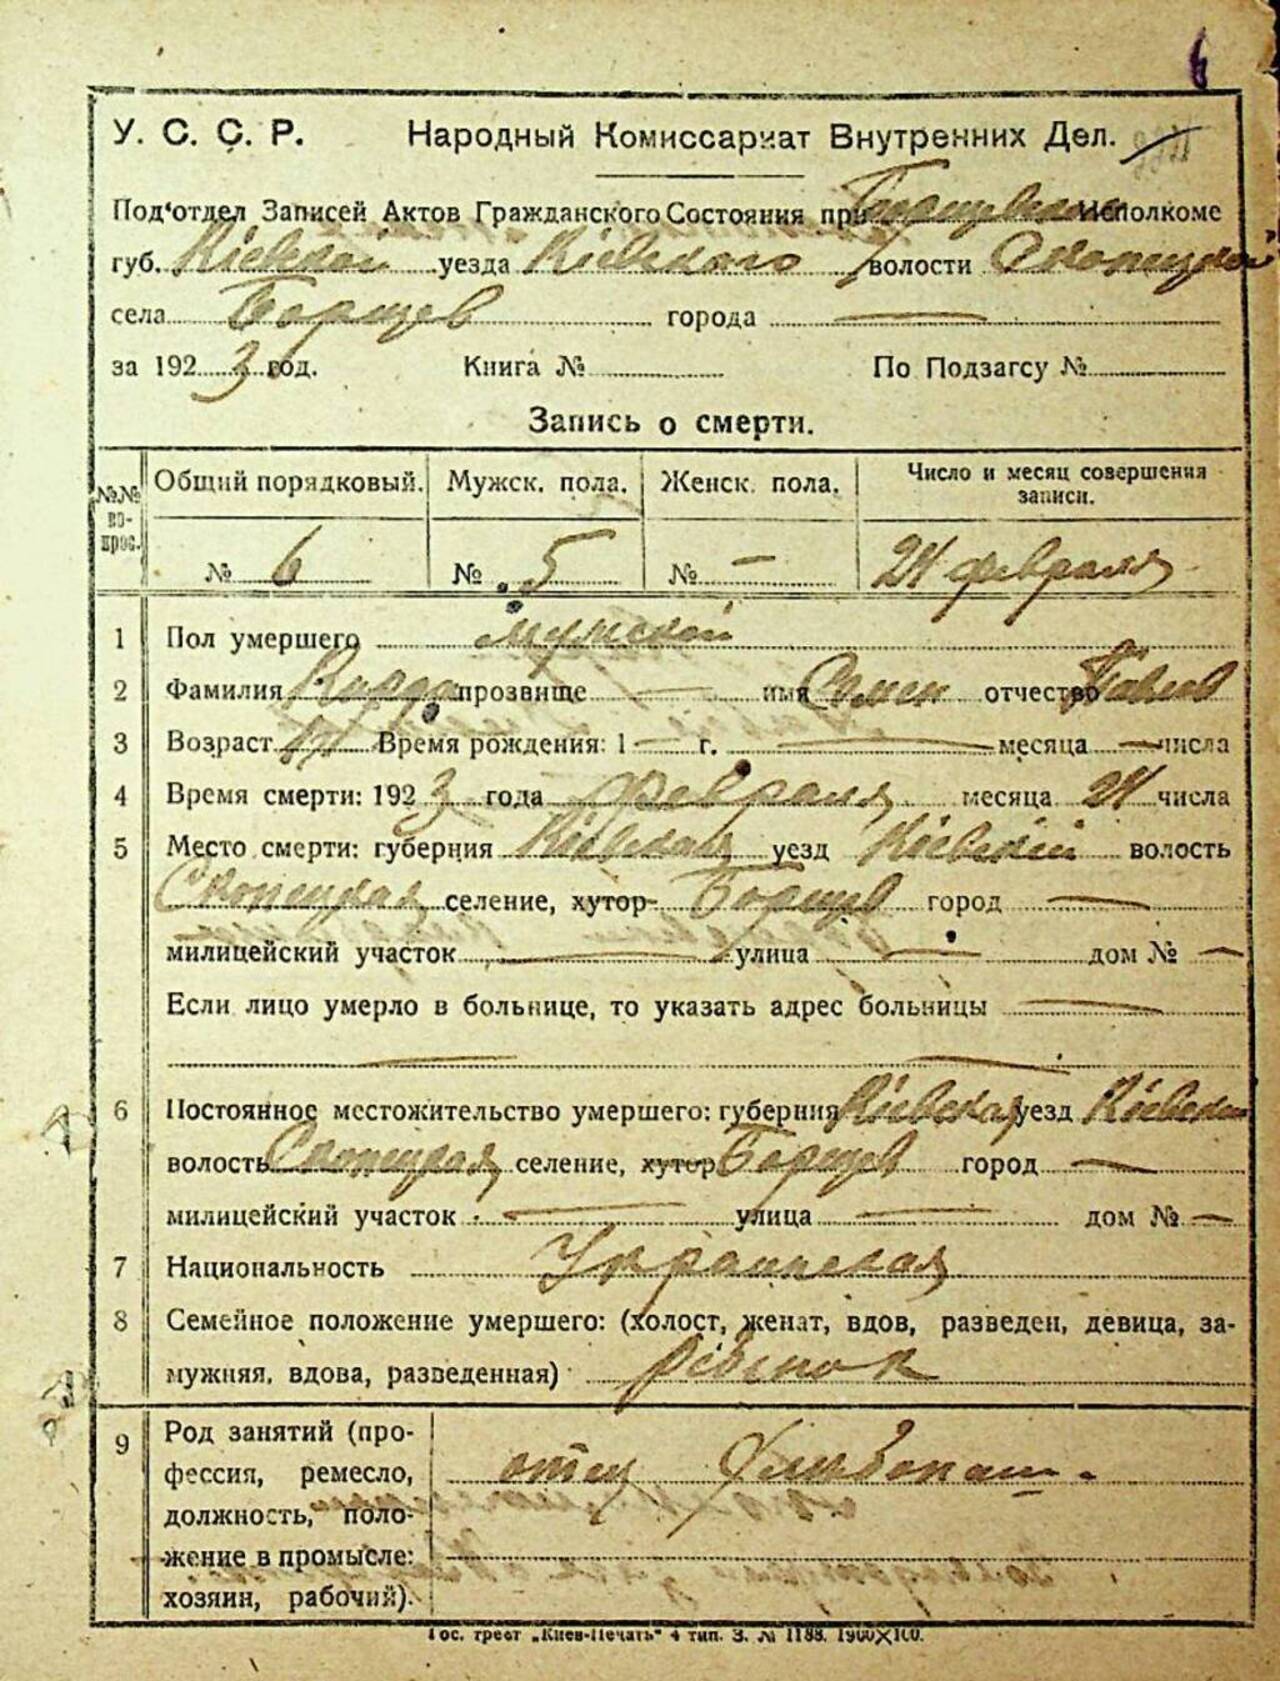 6
У. С. С. Р. Народный Комиссариат Внутренних Дел.
Под'отдел Записей Актов Гражданского Состояния при Борщевском Исполкоме
губ. Кіевской уезда Кіевского волости Скопецкой
села Борщев города —
за 1923 год. Книга № По Подзагсу №
Запись о смерти.
№№ вопрос. Общий порядковый. Мужск. пола. Женск. пола. Число и месяц совершения записи.
№ 6 № 5 № — 24 февраля
1 Пол умершего мужской
2 Фамилия прозвище — имя Семен отчество Павлов
3 Возраст Время рождения: 1 — г. — месяца — числа
4 Время смерти: 1923 года Февраля месяца 24 числа
5 Место смерти: губерния Кіевская уезд Кіевскій волость
Скопецкая селение, хутор Борщев город —
милицейский участок — улица — дом № —
Если лицо умерло в больнице, то указать адрес больницы —
— —
6 Постоянное местожительство умершего: губерния Кіевская уезд Кіевский
волость Скопецкая селение, хутор Борщев город —
милицейский участок — улица — дом № —
7 Национальность Украинская
8 Семейное положение умершего: (холост, женат, вдов, разведен, девица, за-
мужняя, вдова, разведенная) ребенок
9 Род занятий (про-
фессия, ремесло, отец Хлебопаш.
должность, поло-
жение в промысле:
хозяин, рабочий).
Гос. трест „Киев-Печать" 4 тип. З. № 1188. 1900×100.